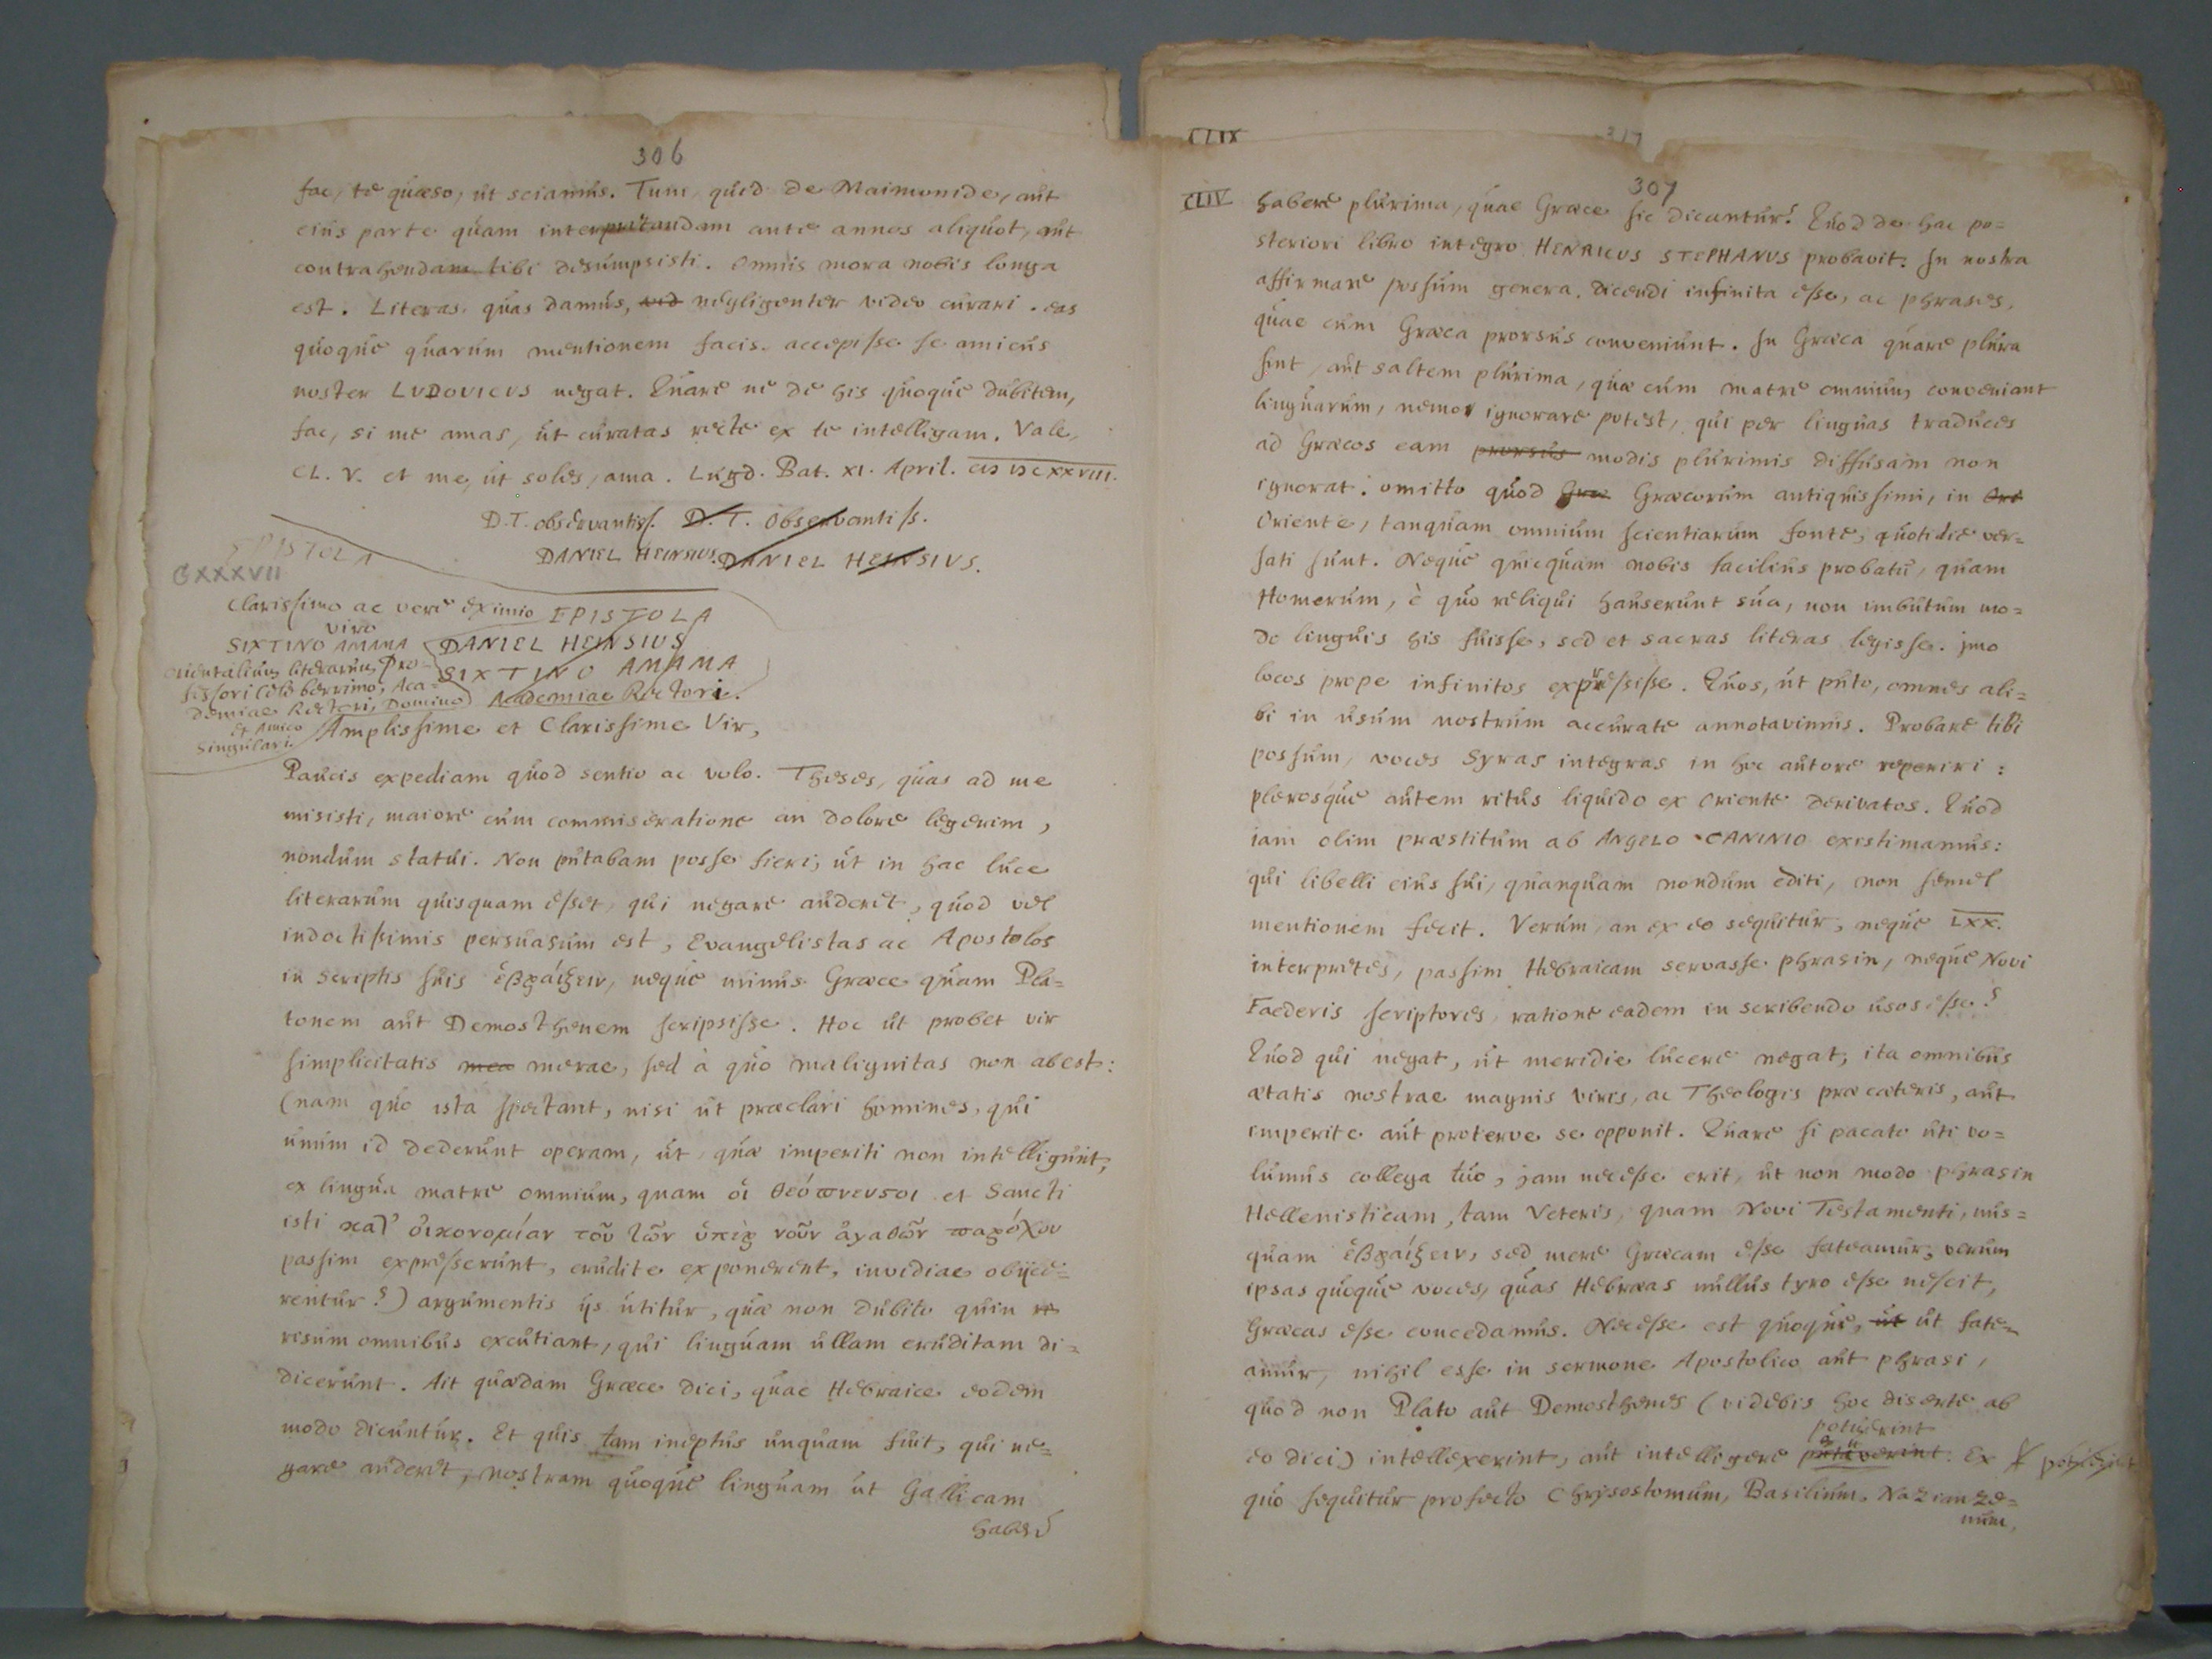 306
fac, te quæso, ut sciamus. Tum, quid de Maimonide, aut
eius parte quam interpretandam ante annos aliquot, aut
contrahendam tibi desumpsisti. Omnis mora nobis longa
est. Literas, quas damus, vid negligenter video curari. eas
quoque quarum mentionem facis accepisse se amicus
noster LUDOVICUS negat. Quare ne de his quoque dubitem,
fac, si me amas, ut curatas recte ex te intelligam. Vale,
CL. V. et me, ut soles, ama. Lugd. Bat. XI. April. CIƆ IƆC XXVIII.
D.T. observantiss. D. T. Observantiss.
DANIEL HEINSIUS. DANIEL HEINSIUS.
EPISTOLA
CXXXVII
Clarissimo ac vere eximio EPISTOLA
viro
SIXTINO AMAMA DANIEL HEINSIUS
orientalium literarum, Pro- SIXTINO AMAMA
fessori celeberrimo, Aca- Academiae Rectori.
demiae Rectori, Domino
et Amico
singulari. Amplissime et Clarissime Vir,
Paucis expediam quod sentio ac volo. Theses, quas ad me
misisti, maiore cum commiseratione an dolore legerim,
nondum statui. Non putabam posse fieri, ut in hac luce
literarum quisquam esset, qui negare auderet, quod vel
indoctissimis persuasum est, Evangelistas ac Apostolos
in scriptis suis ἑβραΐζειν, neque minus Græce quam Pla=
tonem aut Demosthenem scripsisse. Hoc ut probet vir
simplicitatis mea merae, sed à quo malignitas non abest:
(nam quo ista spectant, nisi ut præclari homines, qui
unum id dederunt operam, ut quæ imperiti non intelligunt,
ex lingua matre omnium, quam οἱ θεόπνευστοι et Sancti
isti κατ' οἰκονομίαν τοῦ τῶν ὑπὲρ νοῦν ἀγαθῶν παρόχου
passim expresserunt, erudite exponerent, invidiae obijce=
rentur?) argumentis ijs utitur, quæ non dubito quin re
risum omnibus excutiant, qui linguam ullam eruditam di=
dicerunt. Ait quædam Græce dici, quae Hebraice eodem
modo dicuntur. Et quis tam ineptus unquam fuit, qui ne=
gare auderet, nostram quoque linguam ut Gallicam
habere
CLIX
317
307
CLIV
habere plurima, quae Græce sic dicantur? Quod de hac po=
steriori libro integro HENRICUS STEPHANUS probavit. In nostra
affirmare possum genera dicendi infinita esse, ac phrases,
quae cum Græca prorsus conveniunt. In Græca quare plura
sint, aut saltem plurima, quæ cum matre omnium conveniant
linguarum, nemo ignorare potest, qui per linguas traduces
ad Græcos eam prorsus modis plurimis diffusam non
ignorat. omitto quod Græ Græcorum antiquissimi, in Ore
Oriente, tanquam omnium scientiarum fonte, quotidie ver=
sati sunt. Neque quicquam nobis facilius probatu, quam
Homerum, è quo reliqui hauserunt sua, non imbutum mo=
do linguis his fuisse, sed et sacras literas legisse. jmo
locos prope infinitos expressisse. Quos, ut puto, omnes ali=
bi in usum nostrum accurate annotavimus. Probare tibi
possum, voces Syras integras in hoc autore reperiri:
plerosque autem ritus liquido ex Oriente derivatos. Quod
iam olim præstitum ab ANGELO CANINIO existimamus:
qui libelli eius sui, quanquam nondum editi, non semel
mentionem fecit. Verum, an ex eo sequitur, neque LXX.
interpretes, passim Hebraicam servasse phrasin, neque Novi
Faederis scriptores ratione eadem in scribendo usos esse?
Quod qui negat, ut meridie lucere negat, ita omnibus
ætatis nostrae magnis viris, ac Theologis præ cæteris, aut
imperite aut proterve se opponit. Quare si pacate uti vo=
lumus collega tuo, jam necesse erit, ut non modo phrasin
Hellenisticam, tam Veteris, quam Novi Testamenti, nus=
quam ἑβραΐζειν, sed mere Græcam esse fateamur, verum
ipsas quoque voces, quas Hebræas nullus tyro esse nescit,
Græcas esse concedamus. Necesse est quoque, ut ut fate=
amur, nihil esse in sermone Apostolico aut phrasi,
quod non Plato aut Demosthenes (videbis hoc diserte ab
potuerint
eo dici) intellexerint, aut intelligere putaverint. Ex
quo sequitur profecto Chrysostomum, Basilium, Nazianze=
num,